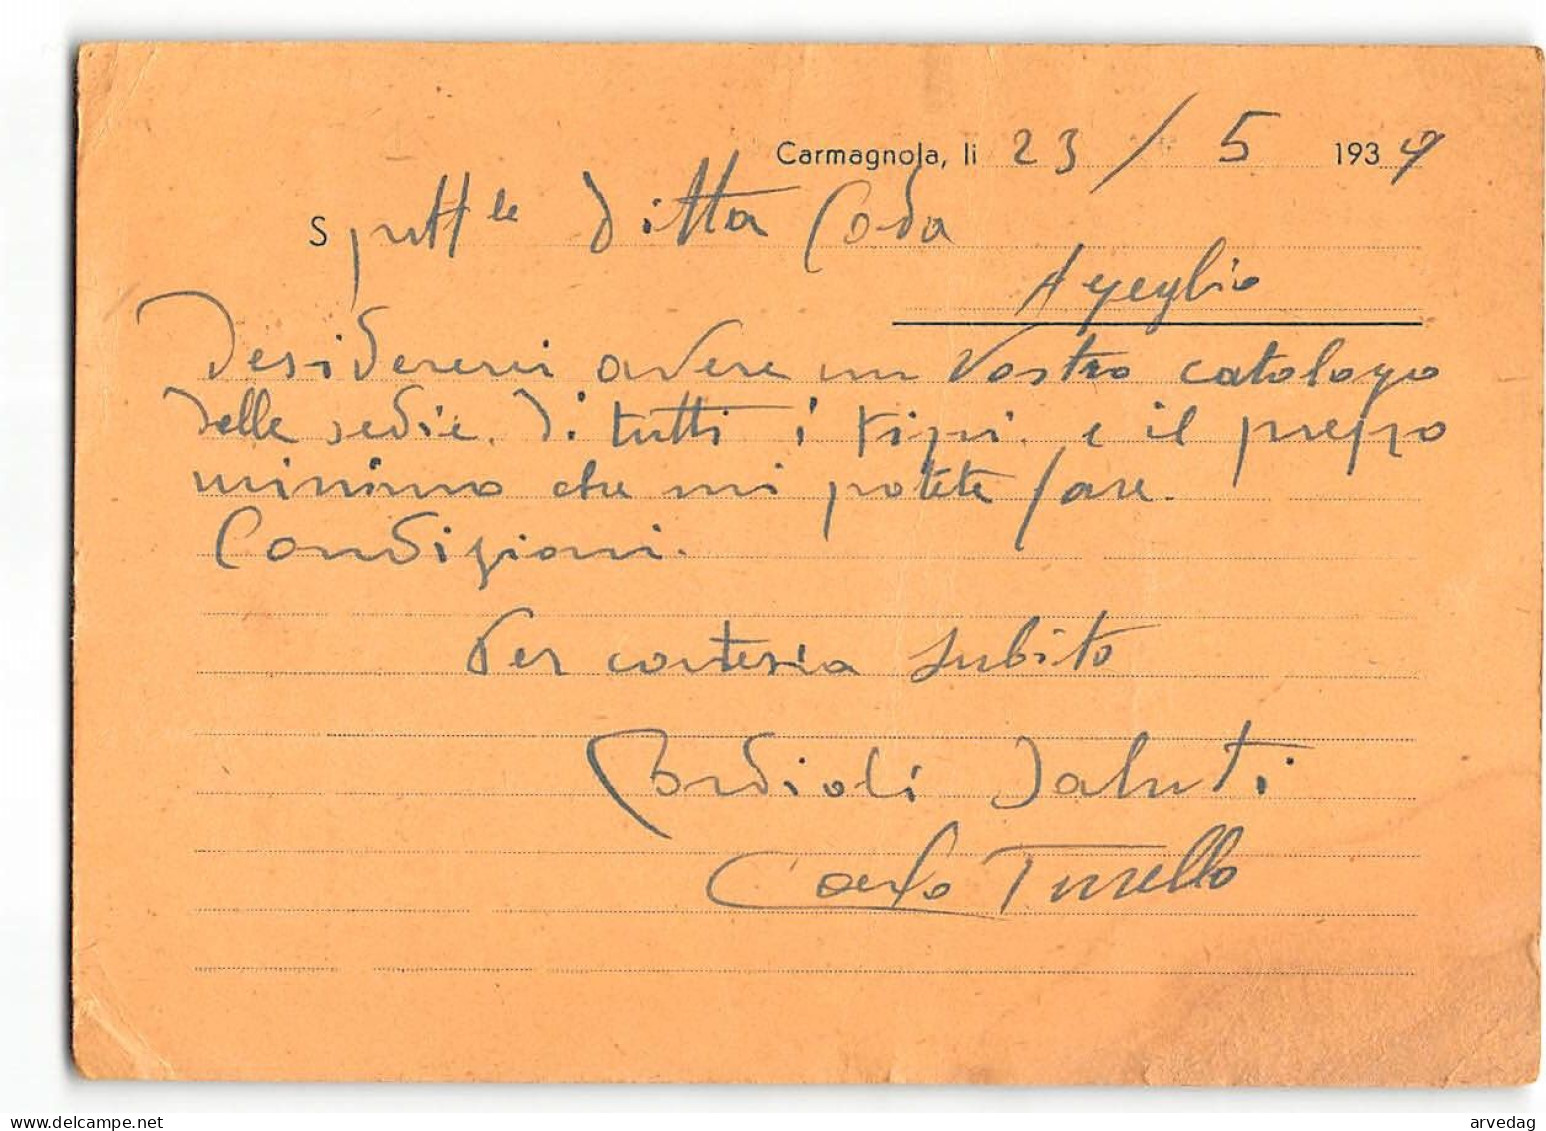 Carmagnola, li 23 / 5 1939
Spett.le Ditta Coda
Azeglio
Desidererei avere un Vostro catologo
delle sedie. di tutti i tipi. e il prezzo
minimo che mi potete fare.
Condizioni.
Per cortesia subito
Cordioli Saluti
Carlo Tusello
arvedag